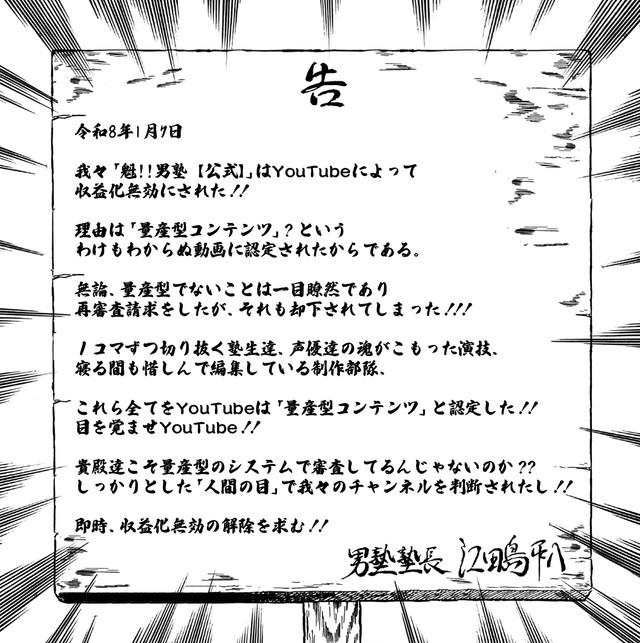 告
令和8年1月7日
我々「魁!!男塾【公式】」はYouTubeによって
収益化無効にされた!!
理由は「量産型コンテンツ」?という
わけもわからぬ動画に認定されたからである。
無論、量産型でないことは一目瞭然であり
再審査請求をしたが、それも却下されてしまった!!!
1コマずつ切り抜く塾生達、声優達の魂がこもった演技、
寝る間も惜しんで編集している制作部隊、
これら全てをYouTubeは「量産型コンテンツ」と認定した!!
目を覚ませYouTube!!
貴殿達こそ量産型のシステムで審査してるんじゃないのか??
しっかりとした「人間の目」で我々のチャンネルを判断されたし!!
即時、収益化無効の解除を求む!!
男塾塾長 江田島平八